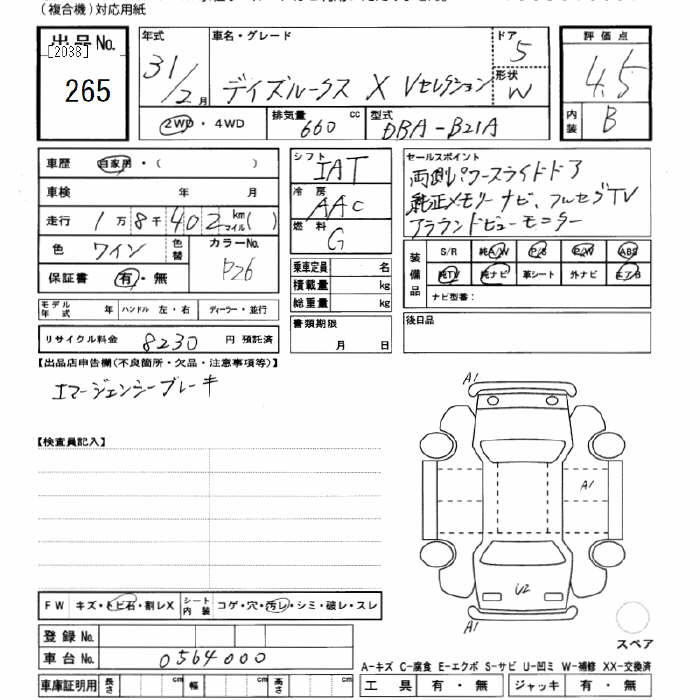 (複合機)対応用紙
出品No.
[2038]
265
年式
31/2月
車名・グレード
デイズルークス X Vセレクション
ドア
5
形状
W
評価点
4.5
内装
B
2WD・4WD
排気量
660 cc
型式
DBA-B21A
車歴 自家用・( )
車検 年 月
走行 1万8千402 km マイル( )
色 ワイン 色替 カラーNo. P26
保証書 有・無
モデル年式 年 ハンドル 左・右 ディーラー・並行
リサイクル料金 8230 円 預託済
シフト
IAT
冷房
AAC
燃料
G
乗車定員 名
積載量 kg
総重量 kg
書類期限
月 日
セールスポイント
両側パワースライドドア
純正メモリーナビ、フルセグTV
アラウンドビューモニター
装備品
S/R 純A/W P/S P/W ABS
純TV 純ナビ 革シート 外ナビ エアB
ナビ型番:
後日品
【出品店申告欄(不良箇所・欠品・注意事項等)】
エマージェンシーブレーキ
【検査員記入】
A1
A1
U2
A1
FW キズ・トビ石・割レX シート内装 コゲ・穴・汚レ・シミ・破レ・スレ
登録No.
車台No. 0564000
スペア
A-キズ C-腐食 E-エクボ S-サビ U-凹ミ W-補修 XX-交換済
車庫証明用 長さ cm 幅 cm 高さ cm
工具 有・無 ジャッキ 有・無